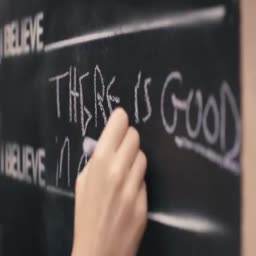 I BELIEVE
THERE IS GOOD
I BELIEVE in